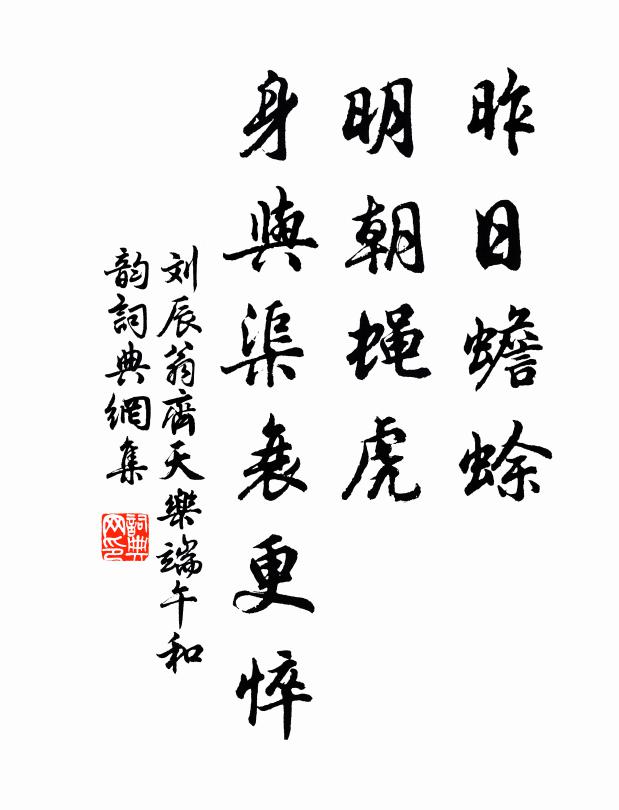 昨日蟾蜍
明朝蝇虎
身與渠衰更悴
刘辰翁齊天樂端午和
韵詞典網集
詞典网印